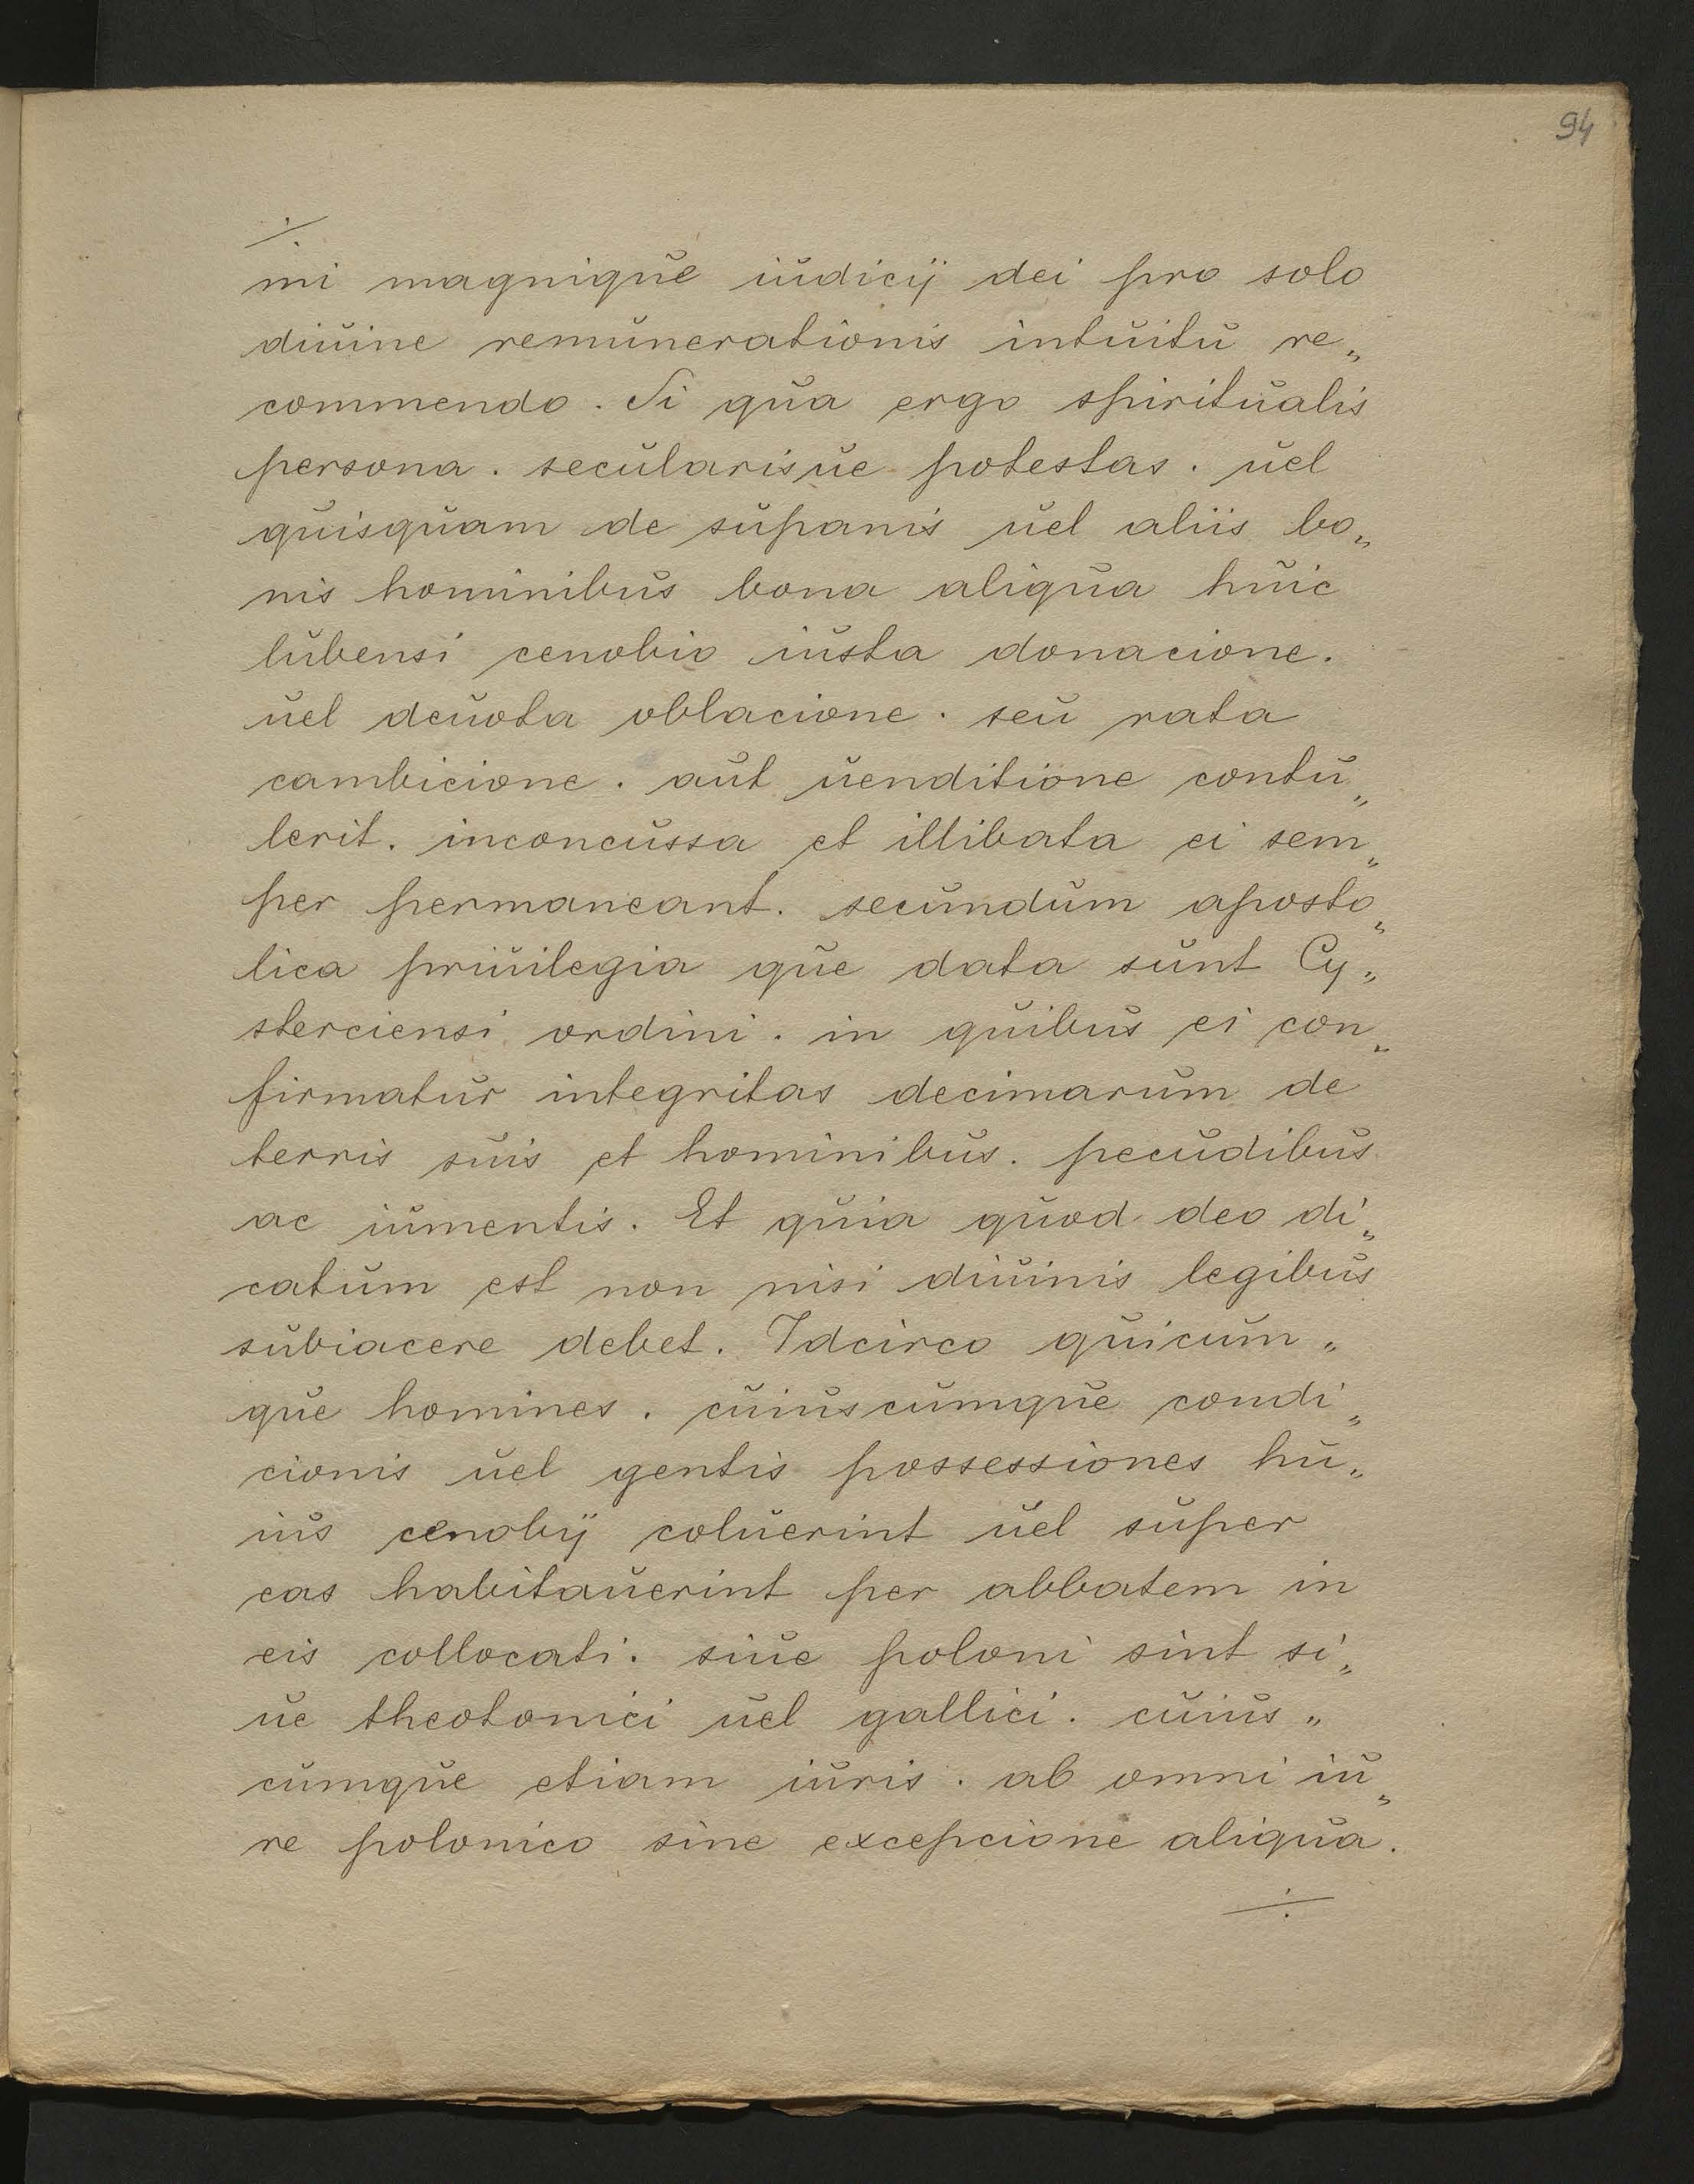 94
÷
mi magnique iudicij dei pro solo
diuine remunerationis intuitu re„
commendo. Si qua ergo spiritualis
persona. secularisue potestas. uel
quisquam de supanis uel aliis bo„
nis hominibus bona aliqua huic
lubensi cenobio iusta donacione.
uel deuota oblacione. seu rata
cambicione. aut uenditione contu„
lerit. inconcussa et illibata ei sem„
per permaneant. secundum aposto„
lica priuilegia que data sunt Cy„
sterciensi ordini. in quibus ei con„
firmatur integritas decimarum de
terris suis et hominibus. pecudibus
ac iumentis. Et quia quod deo di„
catum est non nisi diuinis legibus
subiacere debet. Idcirco quicum„
que homines. cuiuscumque condi„
cionis uel gentis possessiones hu„
ius cenobij coluerint uel super
eas habitauerint per abbatem in
eis collocati. siue poloni sint si„
ue theotonici uel gallici. cuius„
cumque etiam iuris. ab omni iu„
re polonico sine excepcione aliqua.
÷